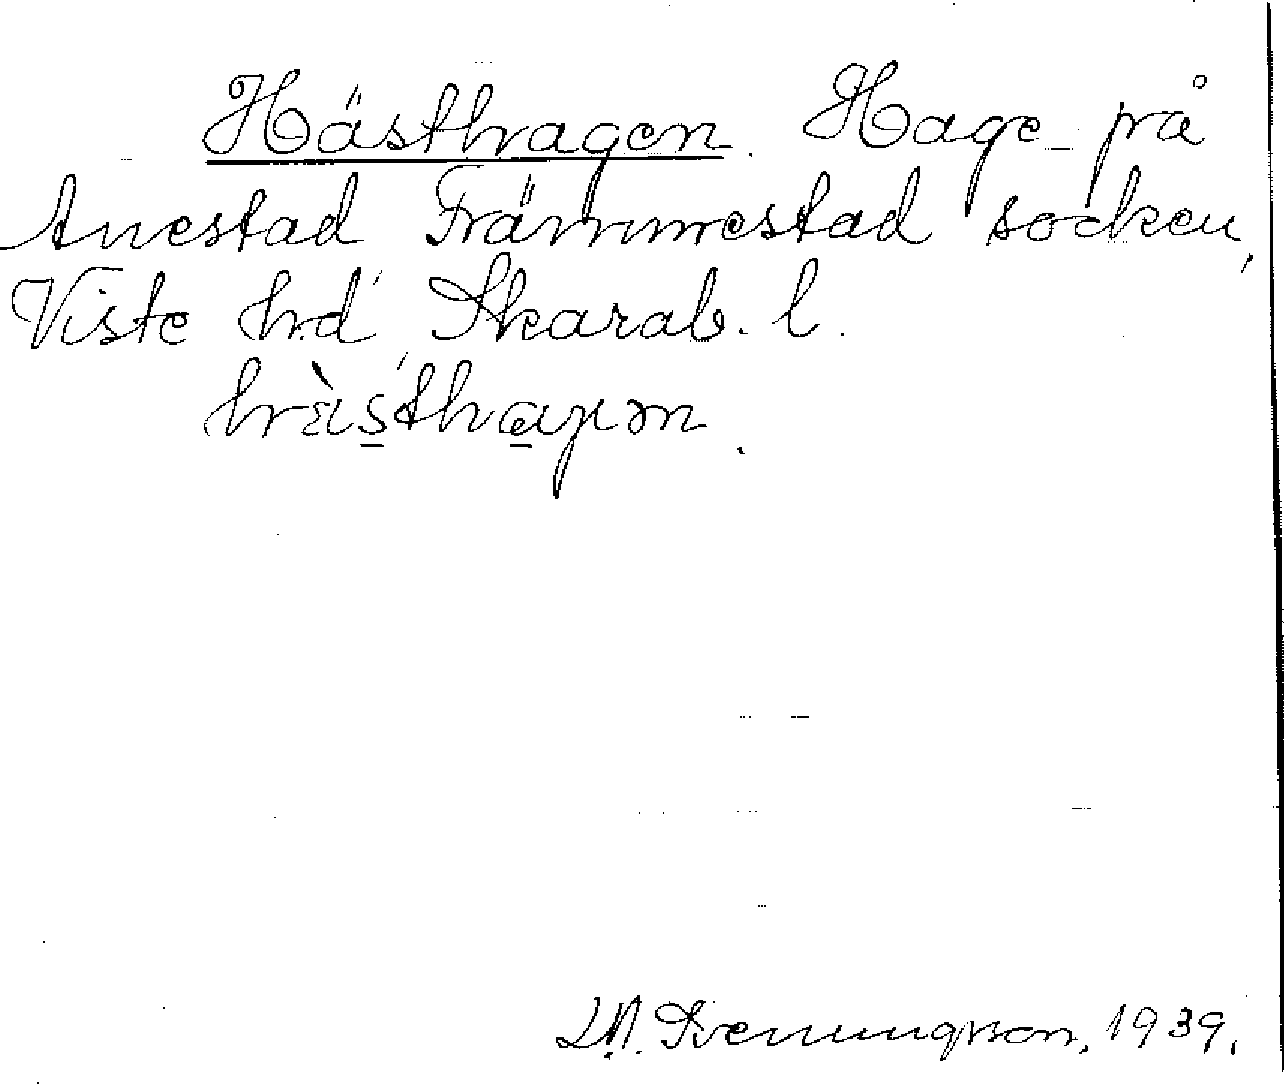 Hästhagen. Hage på
Anestad Främmestad socken,
Viste hd, Skarab. l.
hä̀sthagən.
D.A. Svenungsson, 1939.